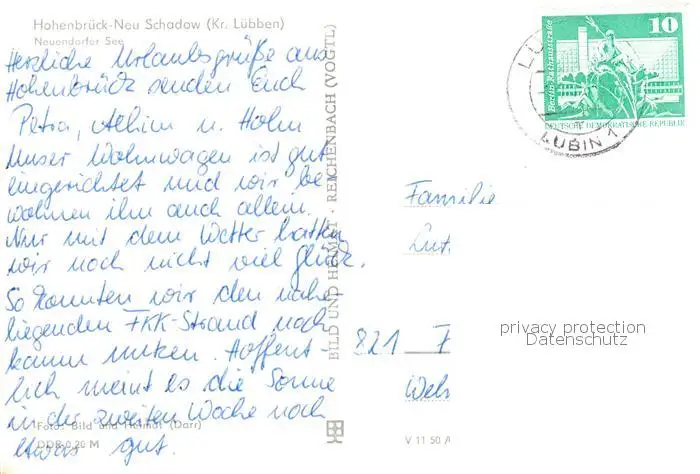 Hohenbrück-Neu Schadow (Kr. Lübben)
Neuendorfer See
Herzliche Urlaubsgrüße aus
Hohenbrück senden Euch
Petra, Achim u. Holm
Unser Wohnwagen ist gut
eingerichtet und wir be-
wohnen ihn auch allein.
Nur mit dem Wetter hatten
wir noch nicht viel Glück.
So konnten wir den nahe-
liegenden FKK-Strand noch
kaum nutzen. Hoffent-
lich meint es die Sonne
in der zweiten Woche noch
etwas gut.
Foto: Bild und Heimat (Darr)
DDR 0,20 M
BILD UND HEIMAT · REICHENBACH (VOGTL)
10
Berlin, Rathausstraße
DEUTSCHE DEMOKRATISCHE REPUBLIK
LÜBBEN 1
LUBIN 1
Familie
Lut
821 F
Wels
V 11 50 A
privacy protection
Datenschutz